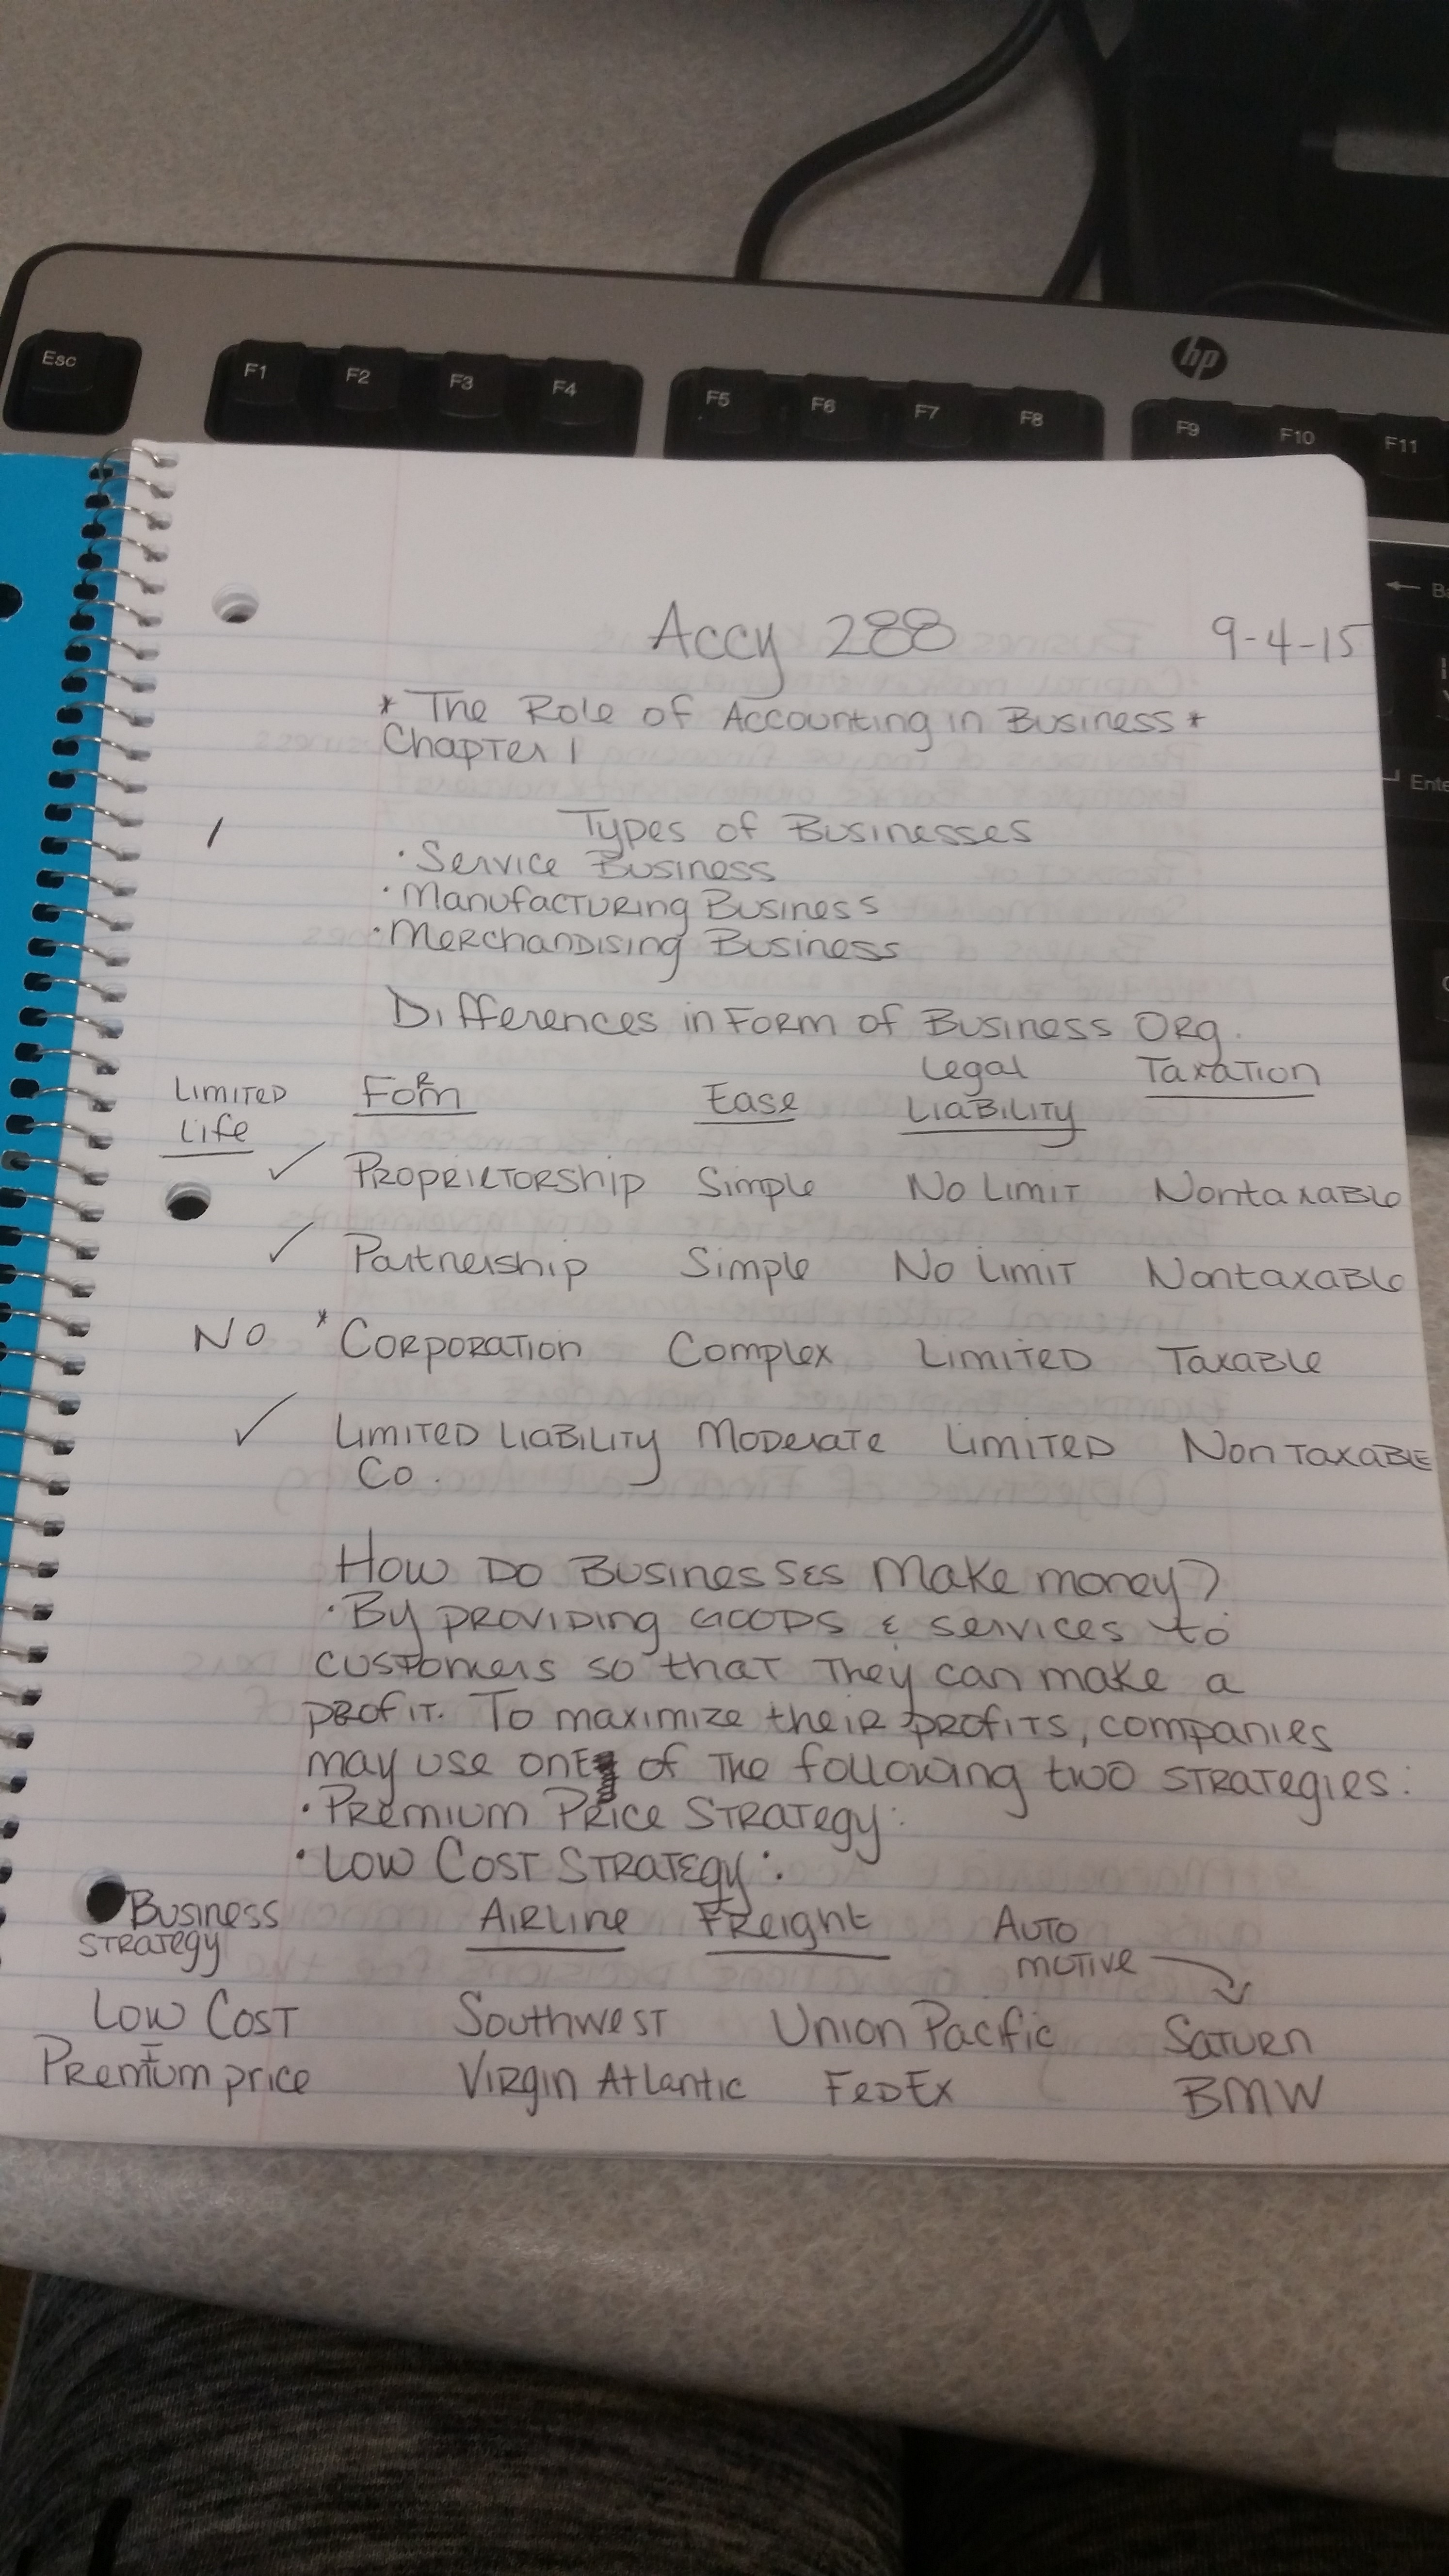 Esc F1 F2 F3 F4 F5 F6 F7 F8 F9 F10 F11
hp
Enter
Accy 288 9-4-15
* The Role of Accounting in Business *
Chapter 1
Types of Businesses
· Service Business
· Manufacturing Business
· Merchandising Business
Differences in Form of Business Org.
Limited Life Form Ease Legal Liability Taxation
✓ Proprietorship Simple No Limit Nontaxable
✓ Partnership Simple No Limit Nontaxable
No * Corporation Complex Limited Taxable
✓ Limited Liability Co. Moderate Limited Nontaxable
How Do Businesses Make money?
· By providing Goods & services to
customers so that they can make a
profit. To maximize their profits, companies
may use one of the following two strategies:
· Premium Price Strategy:
· Low Cost Strategy:
Business Strategy Airline Freight Automotive
Low Cost Southwest Union Pacific Saturn
Premium price Virgin Atlantic FedEx BMW